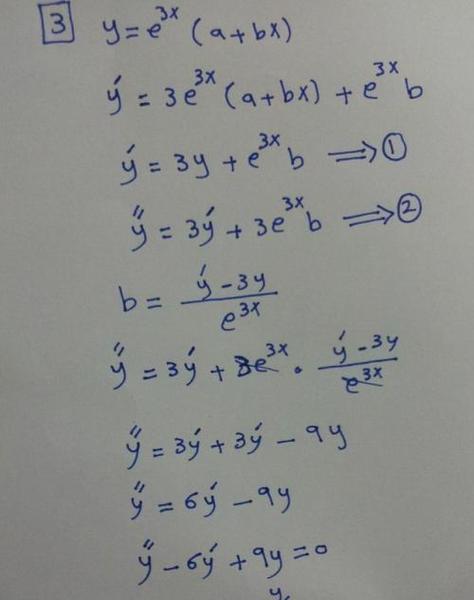 3 y = e^3x (a+bx)
y' = 3e^3x (a+bx) + e^3x b
y' = 3y + e^3x b ⟹ ①
y'' = 3y' + 3e^3x b ⟹ ②
b = (y' - 3y) / e^3x
y'' = 3y' + 3e^3x · (y' - 3y) / e^3x
y'' = 3y' + 3y' - 9y
y'' = 6y' - 9y
y'' - 6y' + 9y = 0